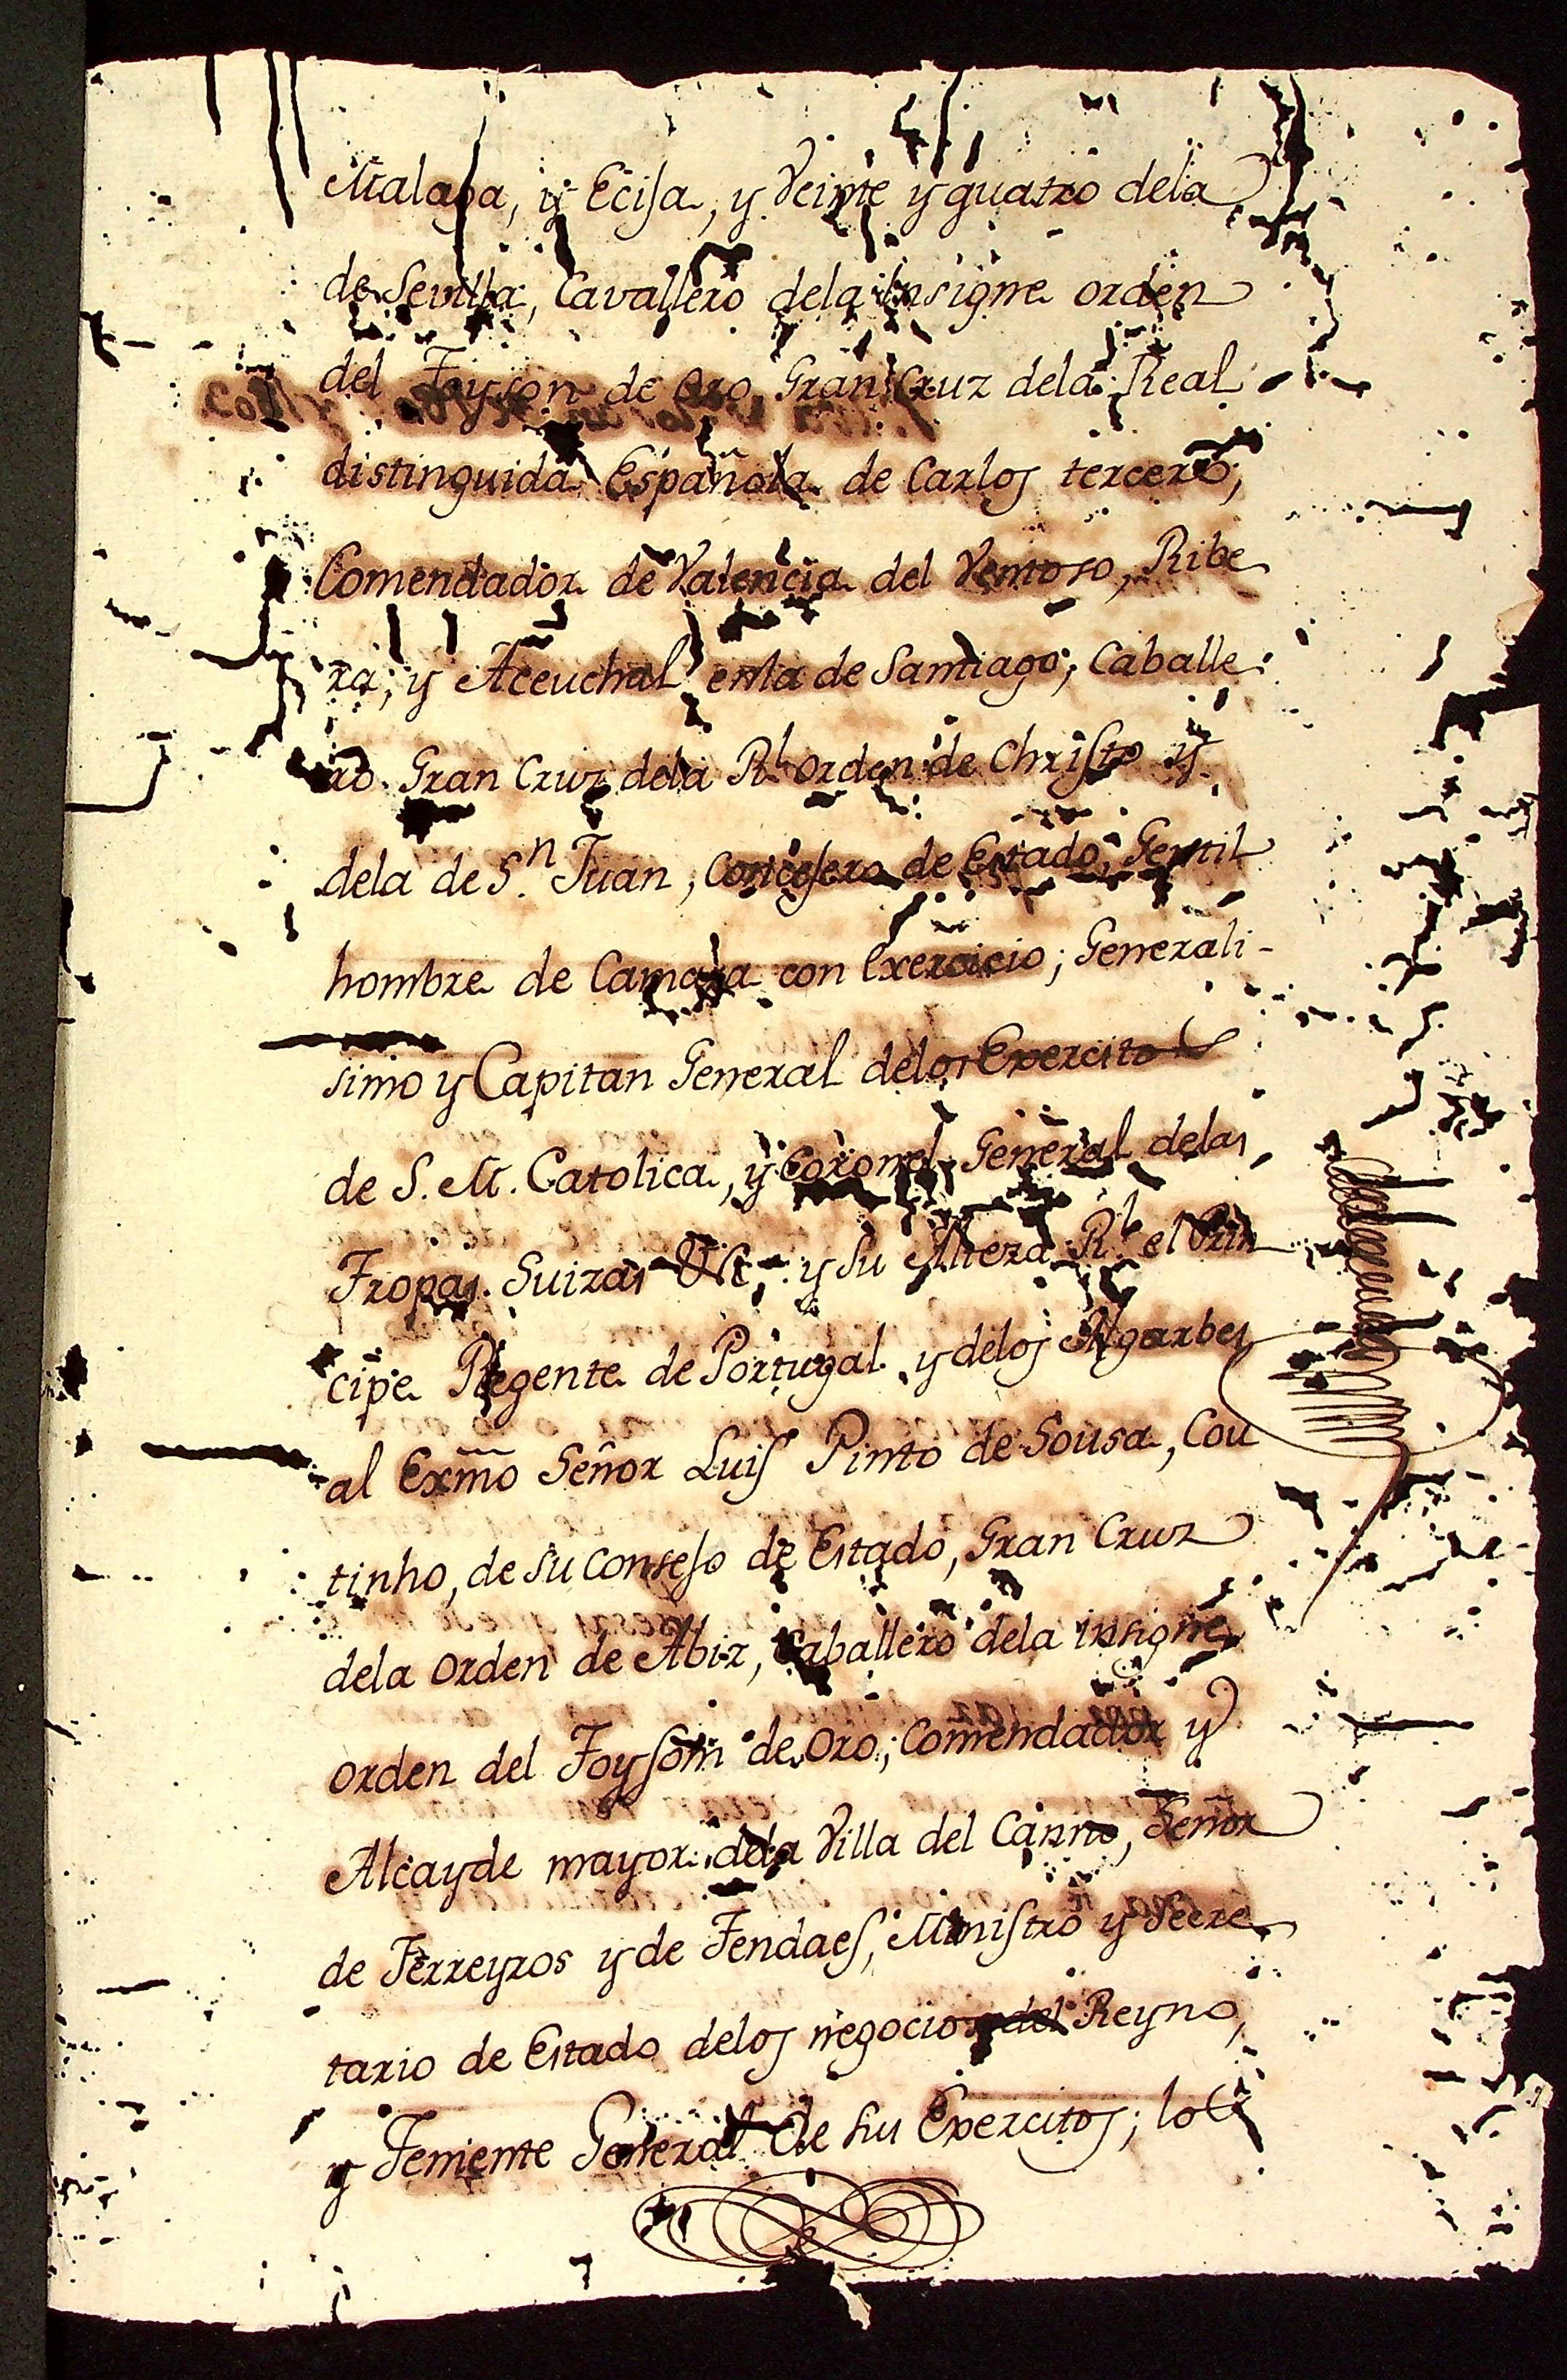 Malaga, y Ecija, y Veinte y quatro dela
de Sevilla, Cavallero dela Insigne orden
del Toyson de Oro Gran Cruz dela Real
distinguida Española de Carlos tercero;
Comendador de Valencia del Ventoso, Ribe
ra, y Aceuchal enla de Santiago; Caballe
ro Gran Cruz dela Rl orden de Christo y
dela de Sn Juan, Concejero de Estado, Gentil
hombre de Camara con Exercicio; Generali-
simo y Capitan General delos Exercitos
de S. M. Catolica, y Coronel General delas
Tropas Suizas &c, y Su Alteza Rl el Prin
cipe Regente de Portugal y delos Algarbes
al Exmo Señor Luis Pinto de Sousa, Cou
tinho, de su Consejo de Estado, Gran Cruz
dela Orden de Abiz, Caballero dela insigne
orden del Toyson de Oro; Comendador y
Alcayde mayor dela Villa del Canno, Señor
de Ferreyros y de Tendaes, Ministro y Secre
tario de Estado delos negocios del Reyno,
y Teniente General de sus Exercitos; los